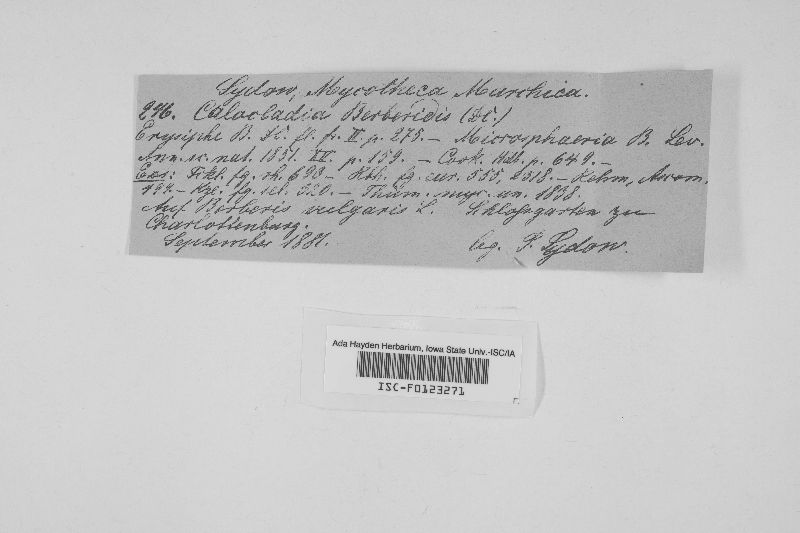 Sydow, Mycotheca Marchica.
246. Calocladia Berberidis (DC.)
Erysiphe B. DC. fl. fr. II. p. 275. – Microsphaeria B. Lev.
Ann. sc. nat. 1851. XV. p. 159. – Cook. Hdb. p. 649. –
Exs: Fckl. fg. rh. 693 – Rbh. fg. eur. 555, 2318. – Rehm, Ascom.
– Kze. fg. sel. 320. – Thüm. myc. un. 1838.
Auf Berberis vulgaris L. Schlossgarten zu
Charlottenburg.
September 1881. leg. P. Sydow.
Ada Hayden Herbarium, Iowa State Univ.-ISC/IA
ISC-F0123271